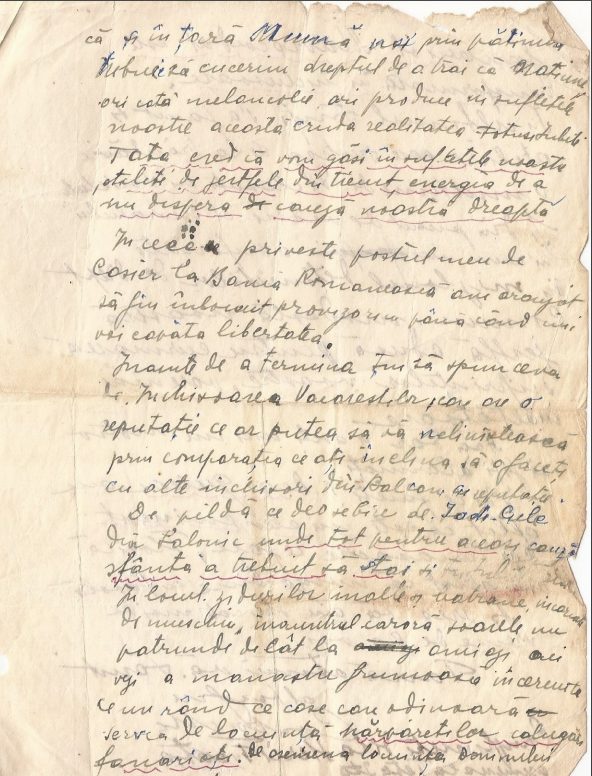 că și în țară Mumă noi prin pătimire
trebuie să cucerim dreptul de a trai că Natiune
ori cată melancolie ari produce in sufletele
noastre această cruda realitatea totusi iubite
Tata cred că vom găsi în sufletele noastre
otelite de jertfele din trecut energia de a
nu dispera de cauza noastra dreaptă
In ceea ce priveste postul meu de
Casier la Banca Romanească am aranjat
să fiu înlocuit provizoriu până când imi
voi capăta libertatea.
Inainte de a termina țin să spun ceva
de Inchisoarea Vacarestilor, care are o
reputație ce ar putea să vă nelinistească
prin comparația ce ați înclina să o faceți
cu alte inchisori din Balcani
De pildă ce deosebire de Iedi-Cule
din Salonic unde tot pentru aceași cauză
sfântă a trebuit să stai si
In locul zidurilor inalte și batrane,
de muschiu, inauntrul caroră soarele nu
patrunde decât la amiazi aci
vezi a manastire frumoasă
un rând de case cari odinioară
servea de locuință calugări
fanarioți. De asemenea locuința Domnului